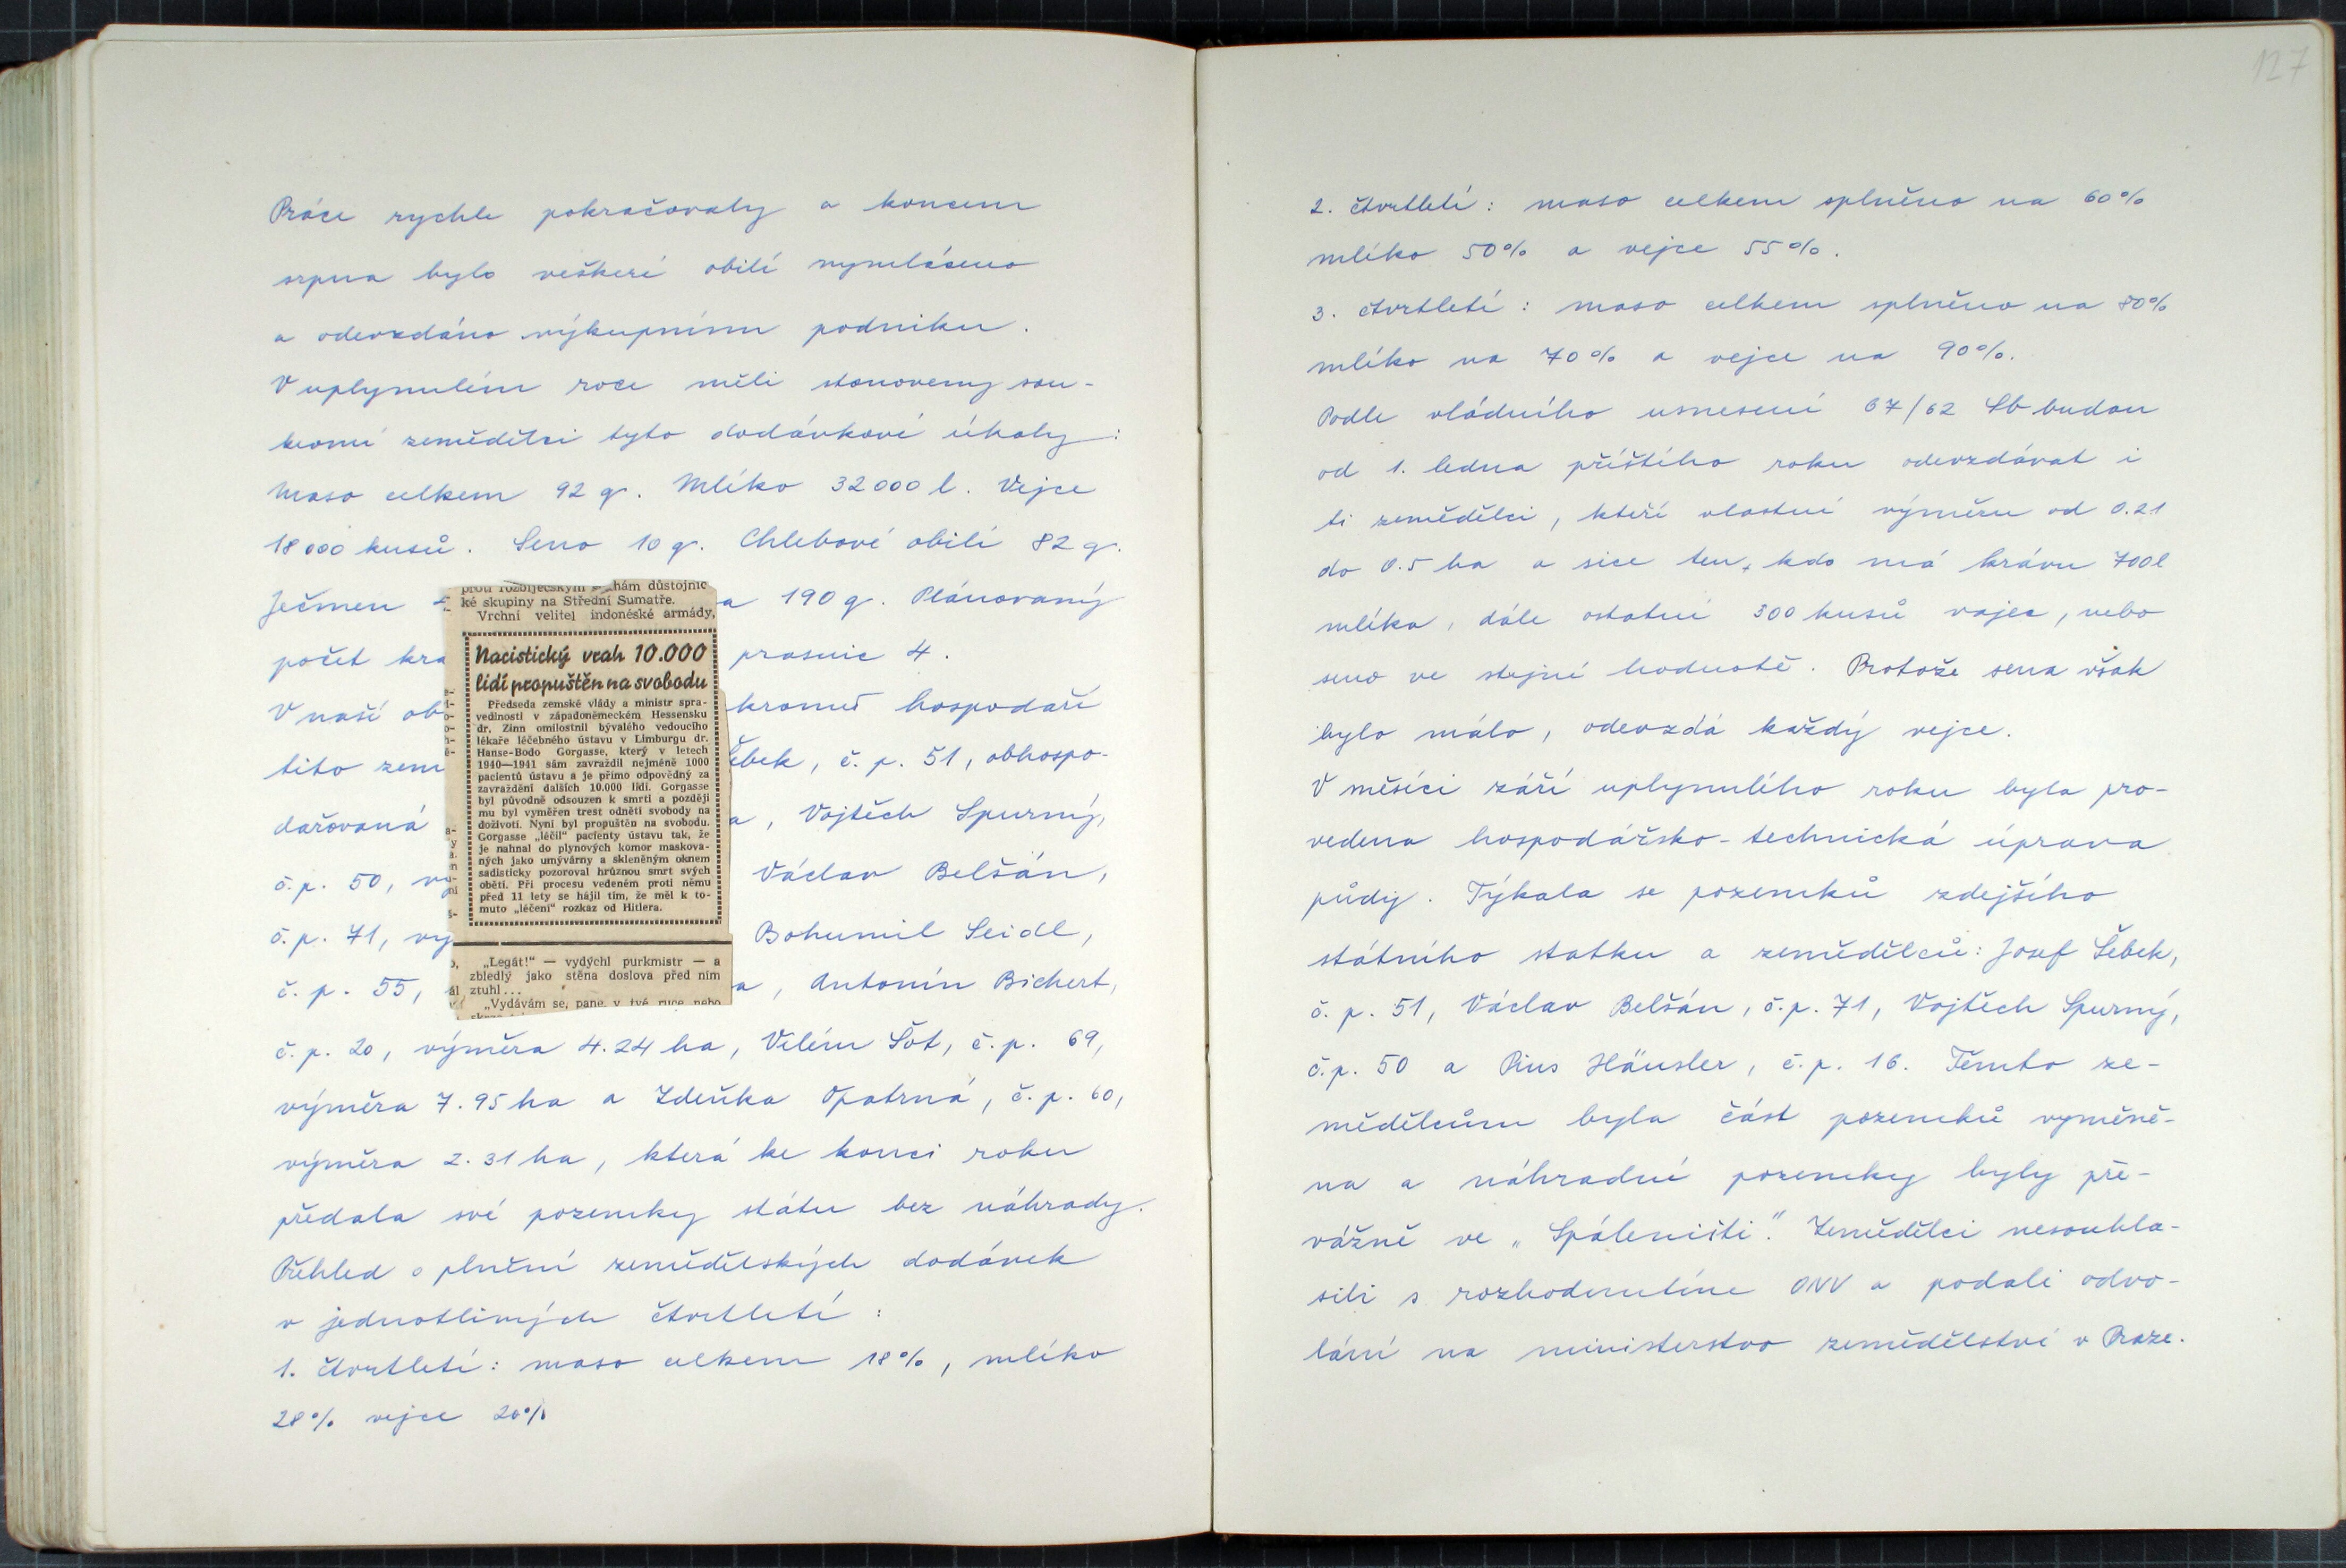 Práce rychle pokračovaly a koncem
srpna bylo veškeré obilí vymláceno
a odevzdáno výkupnímu podniku.
V uplynulém roce měli stanoveny sou-
kromí zemědělci tyto dodávkové úkoly:
Maso celkem 92 q. Mléko 32000 l. Vejce
18000 kusů. Seno 10 q. Chlebové obilí 82 q.
Ječmen a 190 q. Plánovaný
počet kra prasnic 4.
V naší ob kromě hospodaří
tito zem ebek, č. p. 51, obhospo-
dařovaná a, Vojtěch Spurný,
č. p. 50, vý Václav Belšán,
č. p. 71, vý Bohumil Seidl,
č. p. 55, a, Antonín Bichert,
č. p. 20, výměra 4.24 ha, Vilém Šot, č. p. 69,
výměra 7.95 ha a Zdeňka Opatrná, č. p. 60,
výměra 2.31 ha, která ke konci roku
předala své pozemky státu bez náhrady.
Přehled o plnění zemědělských dodávek
v jednotlivých čtvrtletí:
1. čtvrtletí: maso celkem 18%, mléko
28% vejce 20%
proti rozbíječským hám důstojnic
ké skupiny na Střední Sumatře.
Vrchní velitel indonéské armády,
Nacistický vrah 10.000
lidí propuštěn na svobodu
Předseda zemské vlády a ministr spra-
vedlnosti v západoněmeckém Hessensku
dr. Zinn omilostnil bývalého vedoucího
lékaře léčebného ústavu v Limburgu dr.
Hanse-Bodo Gorgasse, který v letech
1940—1941 sám zavraždil nejméně 1000
pacientů ústavu a je přímo odpovědný za
zavraždění dalších 10.000 lidí. Gorgasse
byl původně odsouzen k smrti a později
mu byl vyměřen trest odnětí svobody na
doživotí. Nyní byl propuštěn na svobodu.
Gorgasse „léčil" pacienty ústavu tak, že
je nahnal do plynových komor maskova-
ných jako umývárny a skleněným oknem
sadisticky pozoroval hrůznou smrt svých
obětí. Při procesu vedeném proti němu
před 11 lety se hájil tím, že měl k to-
muto „léčení" rozkaz od Hitlera.
„Legát!" — vydýchl purkmistr — a
zbledlý jako stěna doslova před ním
ztuhl...
„Vydávám se, pane, v tvé ruce nebo
127
2. čtvrtletí: maso celkem splněno na 60%
mléko 50% a vejce 55%.
3. čtvrtletí: maso celkem splněno na 80%
mléko na 70% a vejce na 90%.
Podle vládního usnesení 67/62 Sb budou
od 1. ledna příštího roku odevzdávat i
ti zemědělci, kteří vlastní výměru od 0.21
do 0.5 ha a sice ten, kdo má krávu 700 l
mléka, dále ostatní 300 kusů vajec, nebo
seno ve stejné hodnotě. Protože sena však
bylo málo, odevzdá každý vejce.
V měsíci září uplynulého roku byla pro-
vedena hospodářsko-technická úprava
půdy. Týkala se pozemků zdejšího
státního statku a zemědělců: Josef Šebek,
č. p. 51, Václav Belšán, č. p. 71, Vojtěch Spurný,
č. p. 50 a Pius Häusler, č. p. 16. Těmto ze-
mědělcům byla část pozemků vyměně-
na a náhradní pozemky byly pře-
vážně ve „Spáleništi". Zemědělci nesouhla-
sili s rozhodnutím ONV a podali odvo-
lání na ministerstvo zemědělství v Praze.